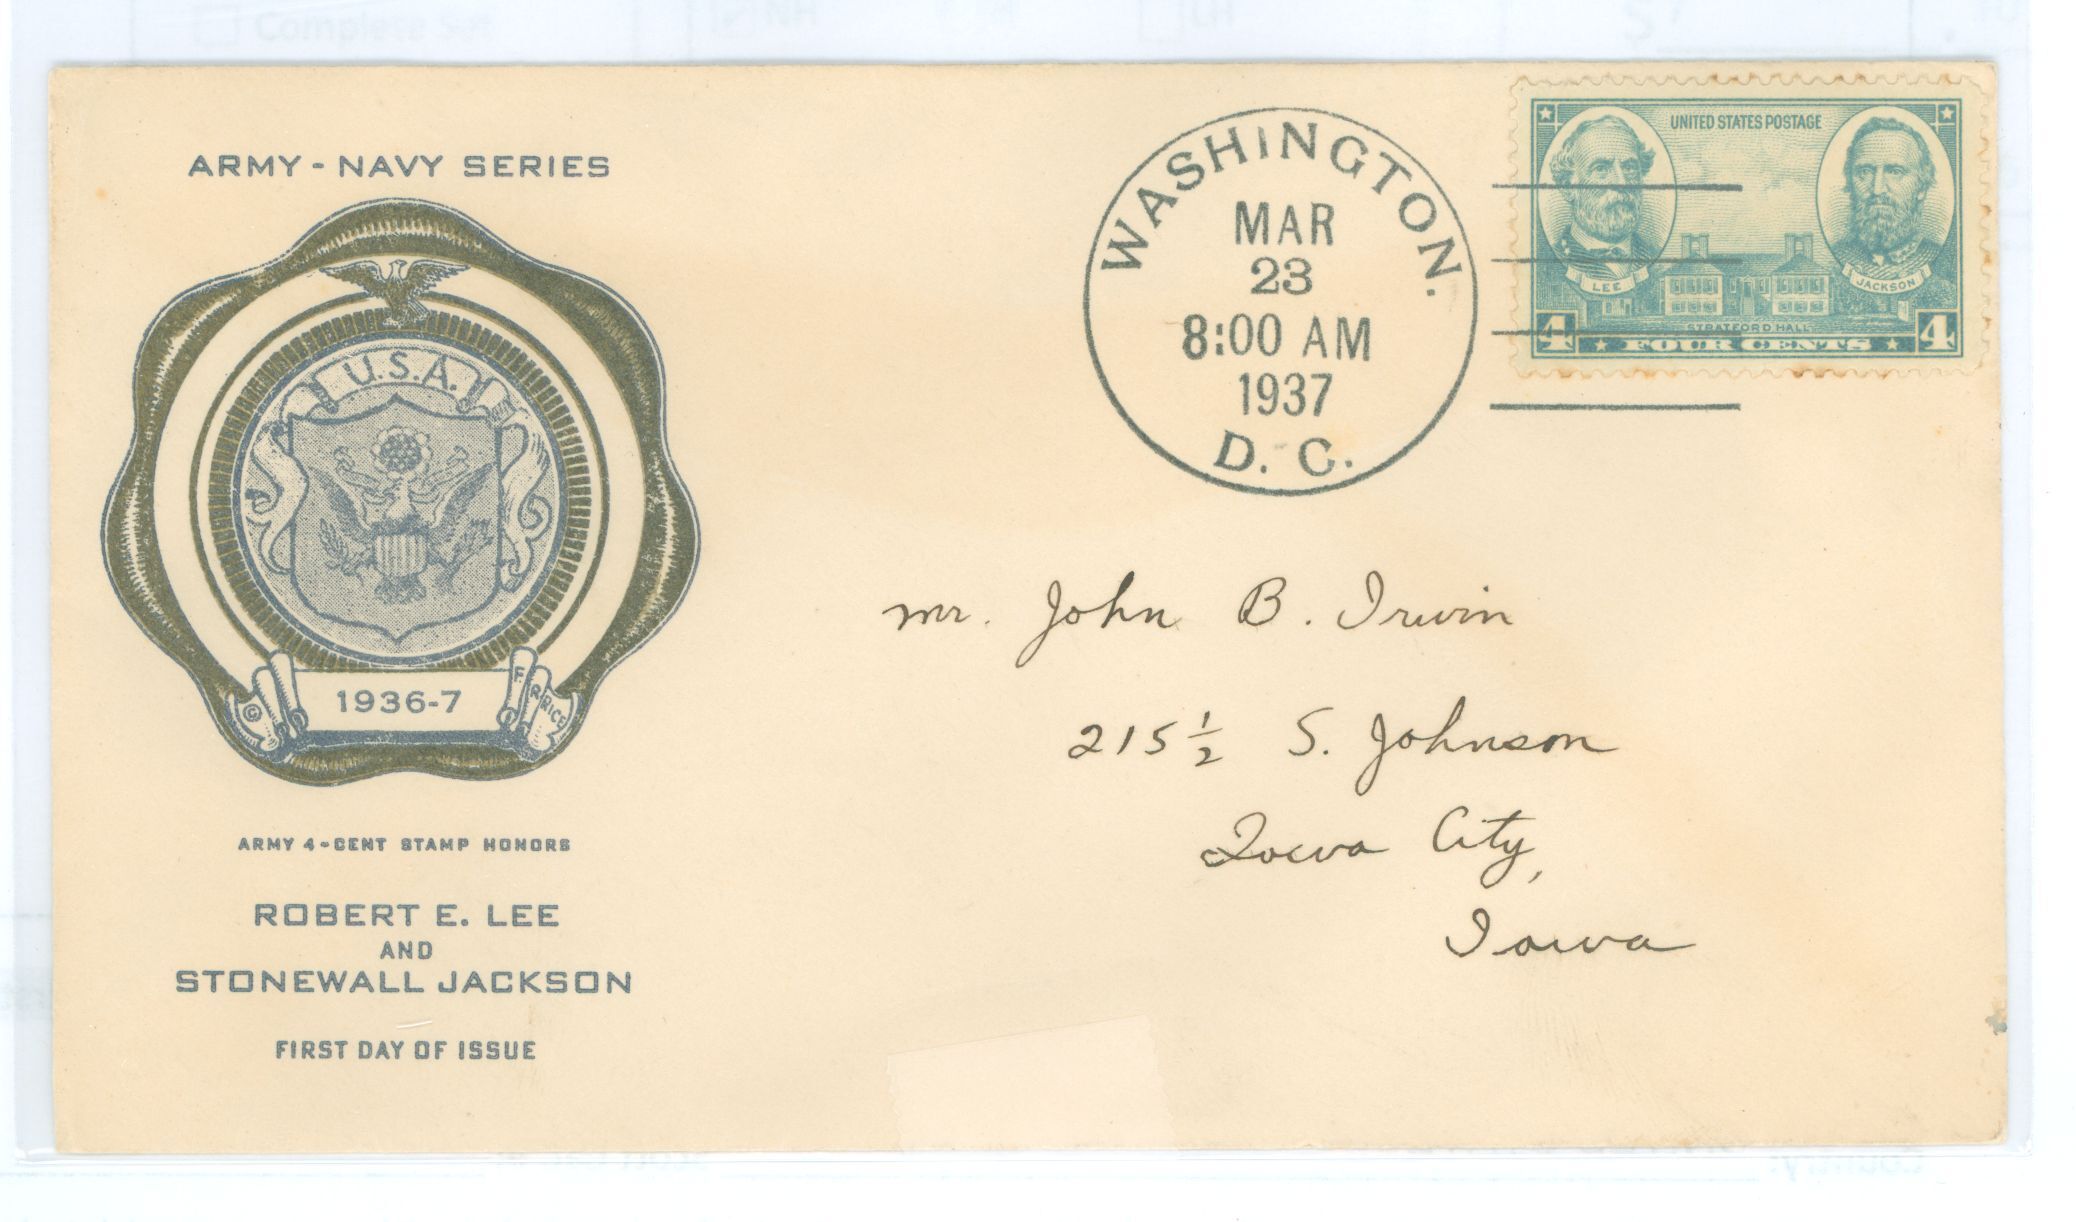 Complete Set
NH
LH
ARMY - NAVY SERIES
U.S.A.
1936-7
© F. R. RICE
ARMY 4-CENT STAMP HONORS
ROBERT E. LEE
AND
STONEWALL JACKSON
FIRST DAY OF ISSUE
WASHINGTON.
MAR
23
8:00 AM
1937
D. C.
UNITED STATES POSTAGE
LEE
JACKSON
STRATFORD HALL
4 FOUR CENTS 4
Mr. John B. Irwin
215 1/2 S. Johnson
Iowa City,
Iowa
Country: